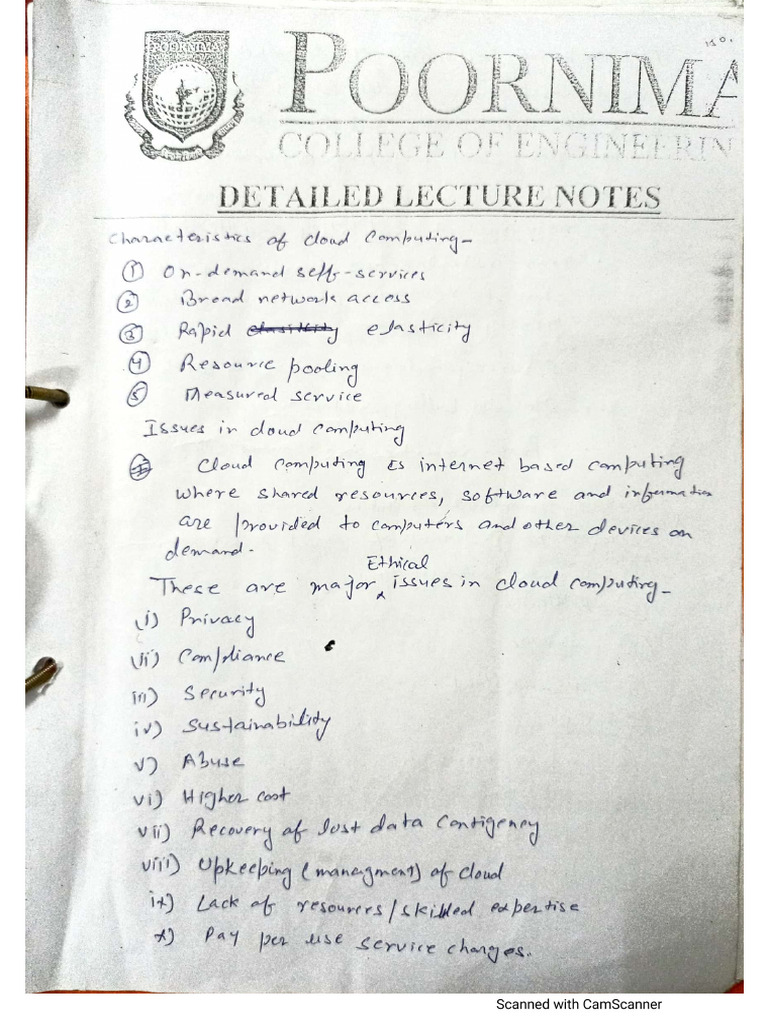 POORNIMA
POORNIMA
COLLEGE OF ENGINEERIN
DETAILED LECTURE NOTES
Characteristics of cloud Computing-
① On-demand self-services
② Broad network access
③ Rapid elasticity
④ Resource pooling
⑤ Measured service
Issues in cloud computing
Cloud computing is internet based computing
where shared resources, software and information
are provided to computers and other devices on
demand.
These are major Ethical issues in cloud computing-
i) Privacy
ii) Compliance
iii) Security
iv) Sustainability
v) Abuse
vi) Higher cost
vii) Recovery of lost data Contigency
viii) Upkeeping (managment) of cloud
ix) Lack of resources/skilled expertise
x) Pay per use service charges.
Scanned with CamScanner